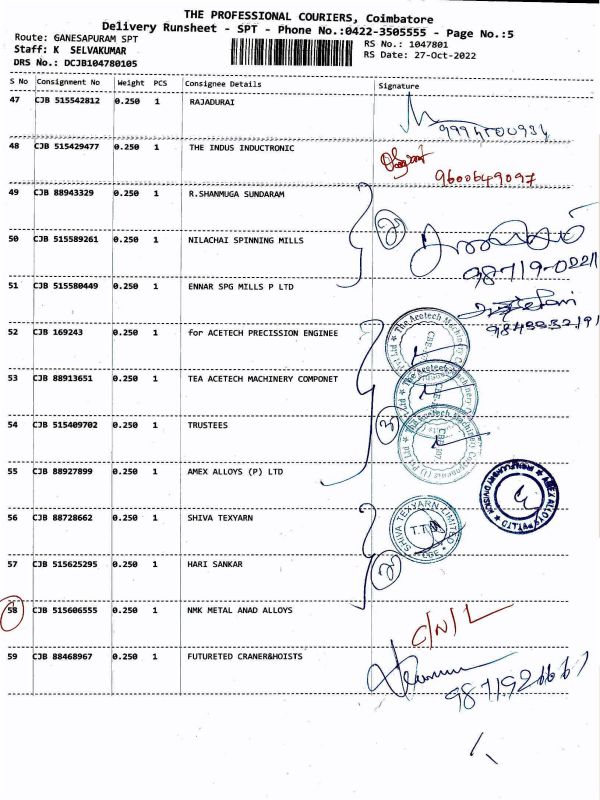 THE PROFESSIONAL COURIERS, Coimbatore
Delivery Runsheet - SPT - Phone No.:0422-3505555 - Page No.:5
Route: GANESAPURAM SPT
RS No.: 1047801
Staff: K SELVAKUMAR
RS Date: 27-Oct-2022
DRS No.: DCJB104780105
S No Consignment No Weight PCS Consignee Details Signature
47 CJB 515542812 0.250 1 RAJADURAI
48 CJB 515429477 0.250 1 THE INDUS INDUCTRONIC
9600649097
49 CJB 88943329 0.250 1 R.SHANMUGA SUNDARAM
50 CJB 515589261 0.250 1 NILACHAI SPINNING MILLS
51 CJB 515580449 0.250 1 ENNAR SPG MILLS P LTD
52 CJB 169243 0.250 1 for ACETECH PRECISSION ENGINEE
53 CJB 88913651 0.250 1 TEA ACETECH MACHINERY COMPONET
54 CJB 515409702 0.250 1 TRUSTEES
55 CJB 88927899 0.250 1 AMEX ALLOYS (P) LTD
56 CJB 88728662 0.250 1 SHIVA TEXYARN
SHIVA TEXYARN LIMITED
CBE
57 CJB 515625295 0.250 1 HARI SANKAR
58 CJB 515606555 0.250 1 NMK METAL ANAD ALLOYS
C/N/L
59 CJB 88468967 0.250 1 FUTURETED CRANER&HOISTS